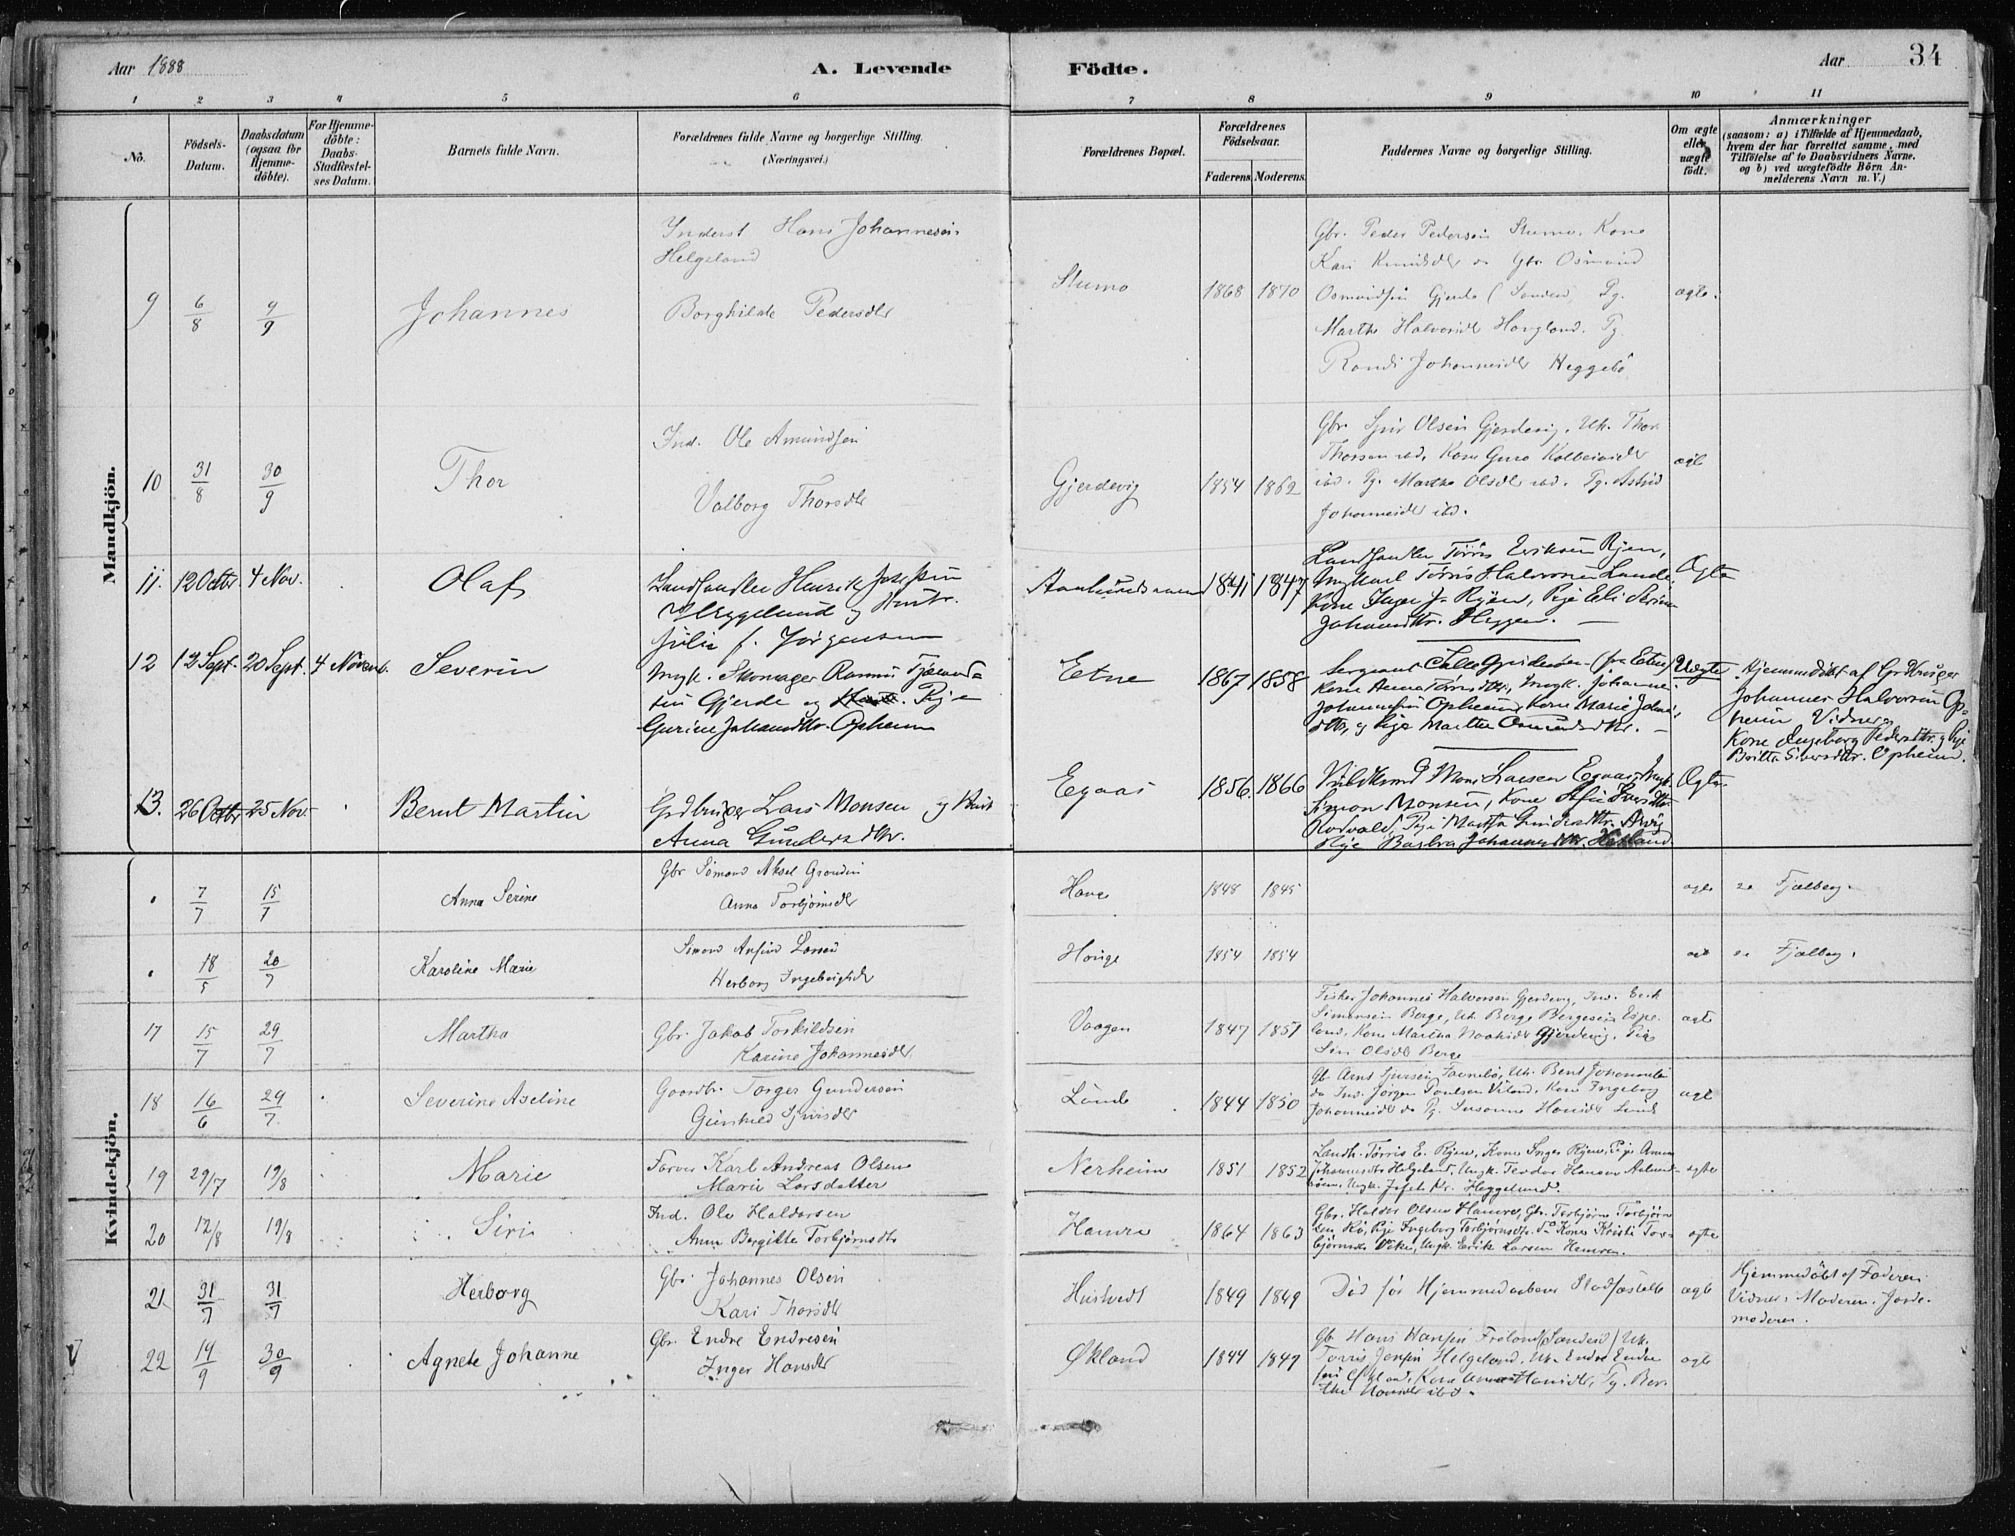 Aar 1888
A. Levende
Födte.
Aar
34
1 2 3 4 5 6 7 8 9 10 11
No.
Födsels-
Datum.
Daabsdatum
(ogsaa for
Hjemme-
döbte).
For Hjemme-
döbte:
Daabs-
Stadfæstel-
ses Datum.
Barnets fulde Navn.
Forældrenes fulde Navne og borgerlige Stilling.
(Næringsvei.)
Forældrenes Bopæl.
Forældrenes
Födselsaar.
Faderens. Moderens.
Faddernes Navne og borgerlige Stilling.
Om ægte
eller
uægte
födt.
Anmærkninger
(saasom: a) i Tilfælde af Hjemmedaab,
hvem der har forrettet samme, med
Tilföielse af to Daabsvidners Navne.
og b) ved uægtefödte Börn An-
melderens Navn m. V.)
Mandkjön.
9 6/8 9/9 Johannes
Inderst Hans Johannesen
Helgeland
Borghilde Pedersdtr
Stumo 1868 1870
Gbr. Peder Pedersen Stumo, Kone
Kari Knudsdtr do Gbr Osmund
Osmundsen Gjerde (Sanden) Pg.
Martha Halvorsdtr Hovgland. Pg.
Randi Johannesdtr Heggebö
ægte.
10 31/8 30/9 Thor
Ind. Ole Amundsen
Valborg Thorsdtr
Gjerdevig 1854 1862
Gbr. Sjur Olsen Gjerdevig, Uk. Thor
Thorsen ibd, Kone Guro Kolbeinsdtr
ibd. Pg. Martha Olsdtr ibd. Pg. Astrid
Johannesdtr ibd.
ægte
11. 12 Octbr 4 Nov. Olaf
Landhandler Henrik Josefsen
Heggelund og Hustr.
Julie f. Jörgensen
1841 1847
Landhandler Törris Eriksen Ryen,
Ungkarl Törris Halvorsen Lande,
Kone Inger J. Ryen, Pige Eli Serine
Johannesdtr. Heggen.
Ægte
12 12 Sept. 20 Sept. 4 Novem. Severin
Ungk. Skomager Rasmus Fjeland-
sen Gjerde og Pige
Gurine Johannesdtr. Opheim
Etne 1867 1858
Sergeant Salle Gundersen (fra Etne)
Kone Anna Törrisdtr, Ungk. Johannes
Johannesen Opheim, Kone Marie Johans-
dtr, og Pige Marthe Osmundsdtr.
Uægte
Hjemmedöbt af Gr. Kruger
Johannes Halvorsen Op-
heim Vidner
Kone Ingeborg Pedersdtr. og Pige
Britta Siversdtr. Opheim.
13. 26 Octbr 25 Nov. Bernt Martin
Grdbruger Lars Monsen og Kust
Anna Gundersdtr.
Egaas 1856. 1866
Mons Larsen Egaas, Ungk.
Simon Monsen, Kone
Rodvald, Pige Martha Gundersdtr. Arvig
Pige Barbra Johannesdtr. Hetland
Ægte
Kvindekjön.
7/7 15/7 Anna Serine
Gbr Simond Aksel
Anna Torbjörnsdtr
Hauge 1848 1845
ægte
Fjelberg.
18/5 20/7 Karoline Marie
Simond Anfind Larsen
Herborg Ingebrigtsdtr
Houge 1854 1854
Fjelberg.
17 15/7 29/7 Martha
Gbr. Jakob Torkildsen
Karine Johannesdtr
Vaagen 1847 1851
Fisker Johannes Halvorsen Gjerdevig, Ind. Erik
Simonsen Berge, Uk. Börge Börgesen Espe-
land, Kone Martha Noahsdtr Gjerdevig, Pige
Siri Olsdtr Berge
ægte
18 16/6 29/7 Severine Aseline
Gaardbr. Torger Gundersen
Gunhild Sjursdtr
Lunde 1844 1850
Gb Arnt Sjursen Javnebö, Uk. Bent Johannesen
do Ind. Jörgen Paulsen Viland, Kone Ingeborg
Johannesdtr do Pg. Susanne Hansdtr Lunde
ægte
19 29/7 19/8 Marie
Farver Karl Andreas Olsen
Marie Larsdatter
Nerheim 1851 1852
Landh. Törris E. Ryen, Kone Inger Ryen, Pige Anna
Johannesdtr Helgeland, Ungk. Teodor Hansen
Ungk. Josef Kr. Heggelund.
ægte
20 12/8 19/8 Siri
Ind. Ole Haldorsen
Anna Bergitte Torbjörnsdtr
Hamre 1864 1863
Gbr. Haldor Olsen Hamre, Gbr. Torbjörn Torbjörn-
sen Rö, Pige Ingeborg Torbjörnsdtr. do Kone Kristi Tor-
björnsdtr Vike, Ungk. Erik Larsen Hamren.
ægte
21 31/7 31/7 Herborg
Gbr. Johannes Olsen
Kari Thorsdtr
Hustvedt 1849 1849
Död för Hjemmedaabens Stadfæstelse
ægte
Hjemmedöbt af Faderen
Vidner: Moderen. Jorde-
moderen.
22 14/9 30/9 Agnete Johanne
Gbr. Endre Endresen
Inger Hansdtr
Økland 1844 1847
Gb Hans Hansen Froland (Sandeid) Uk.
Torris Jensen Helgeland, Uk. Endre Endre-
sen Økland, Kone Anna Hansdtr, Pg. Ber-
the Hansdtr ibd.
ægte